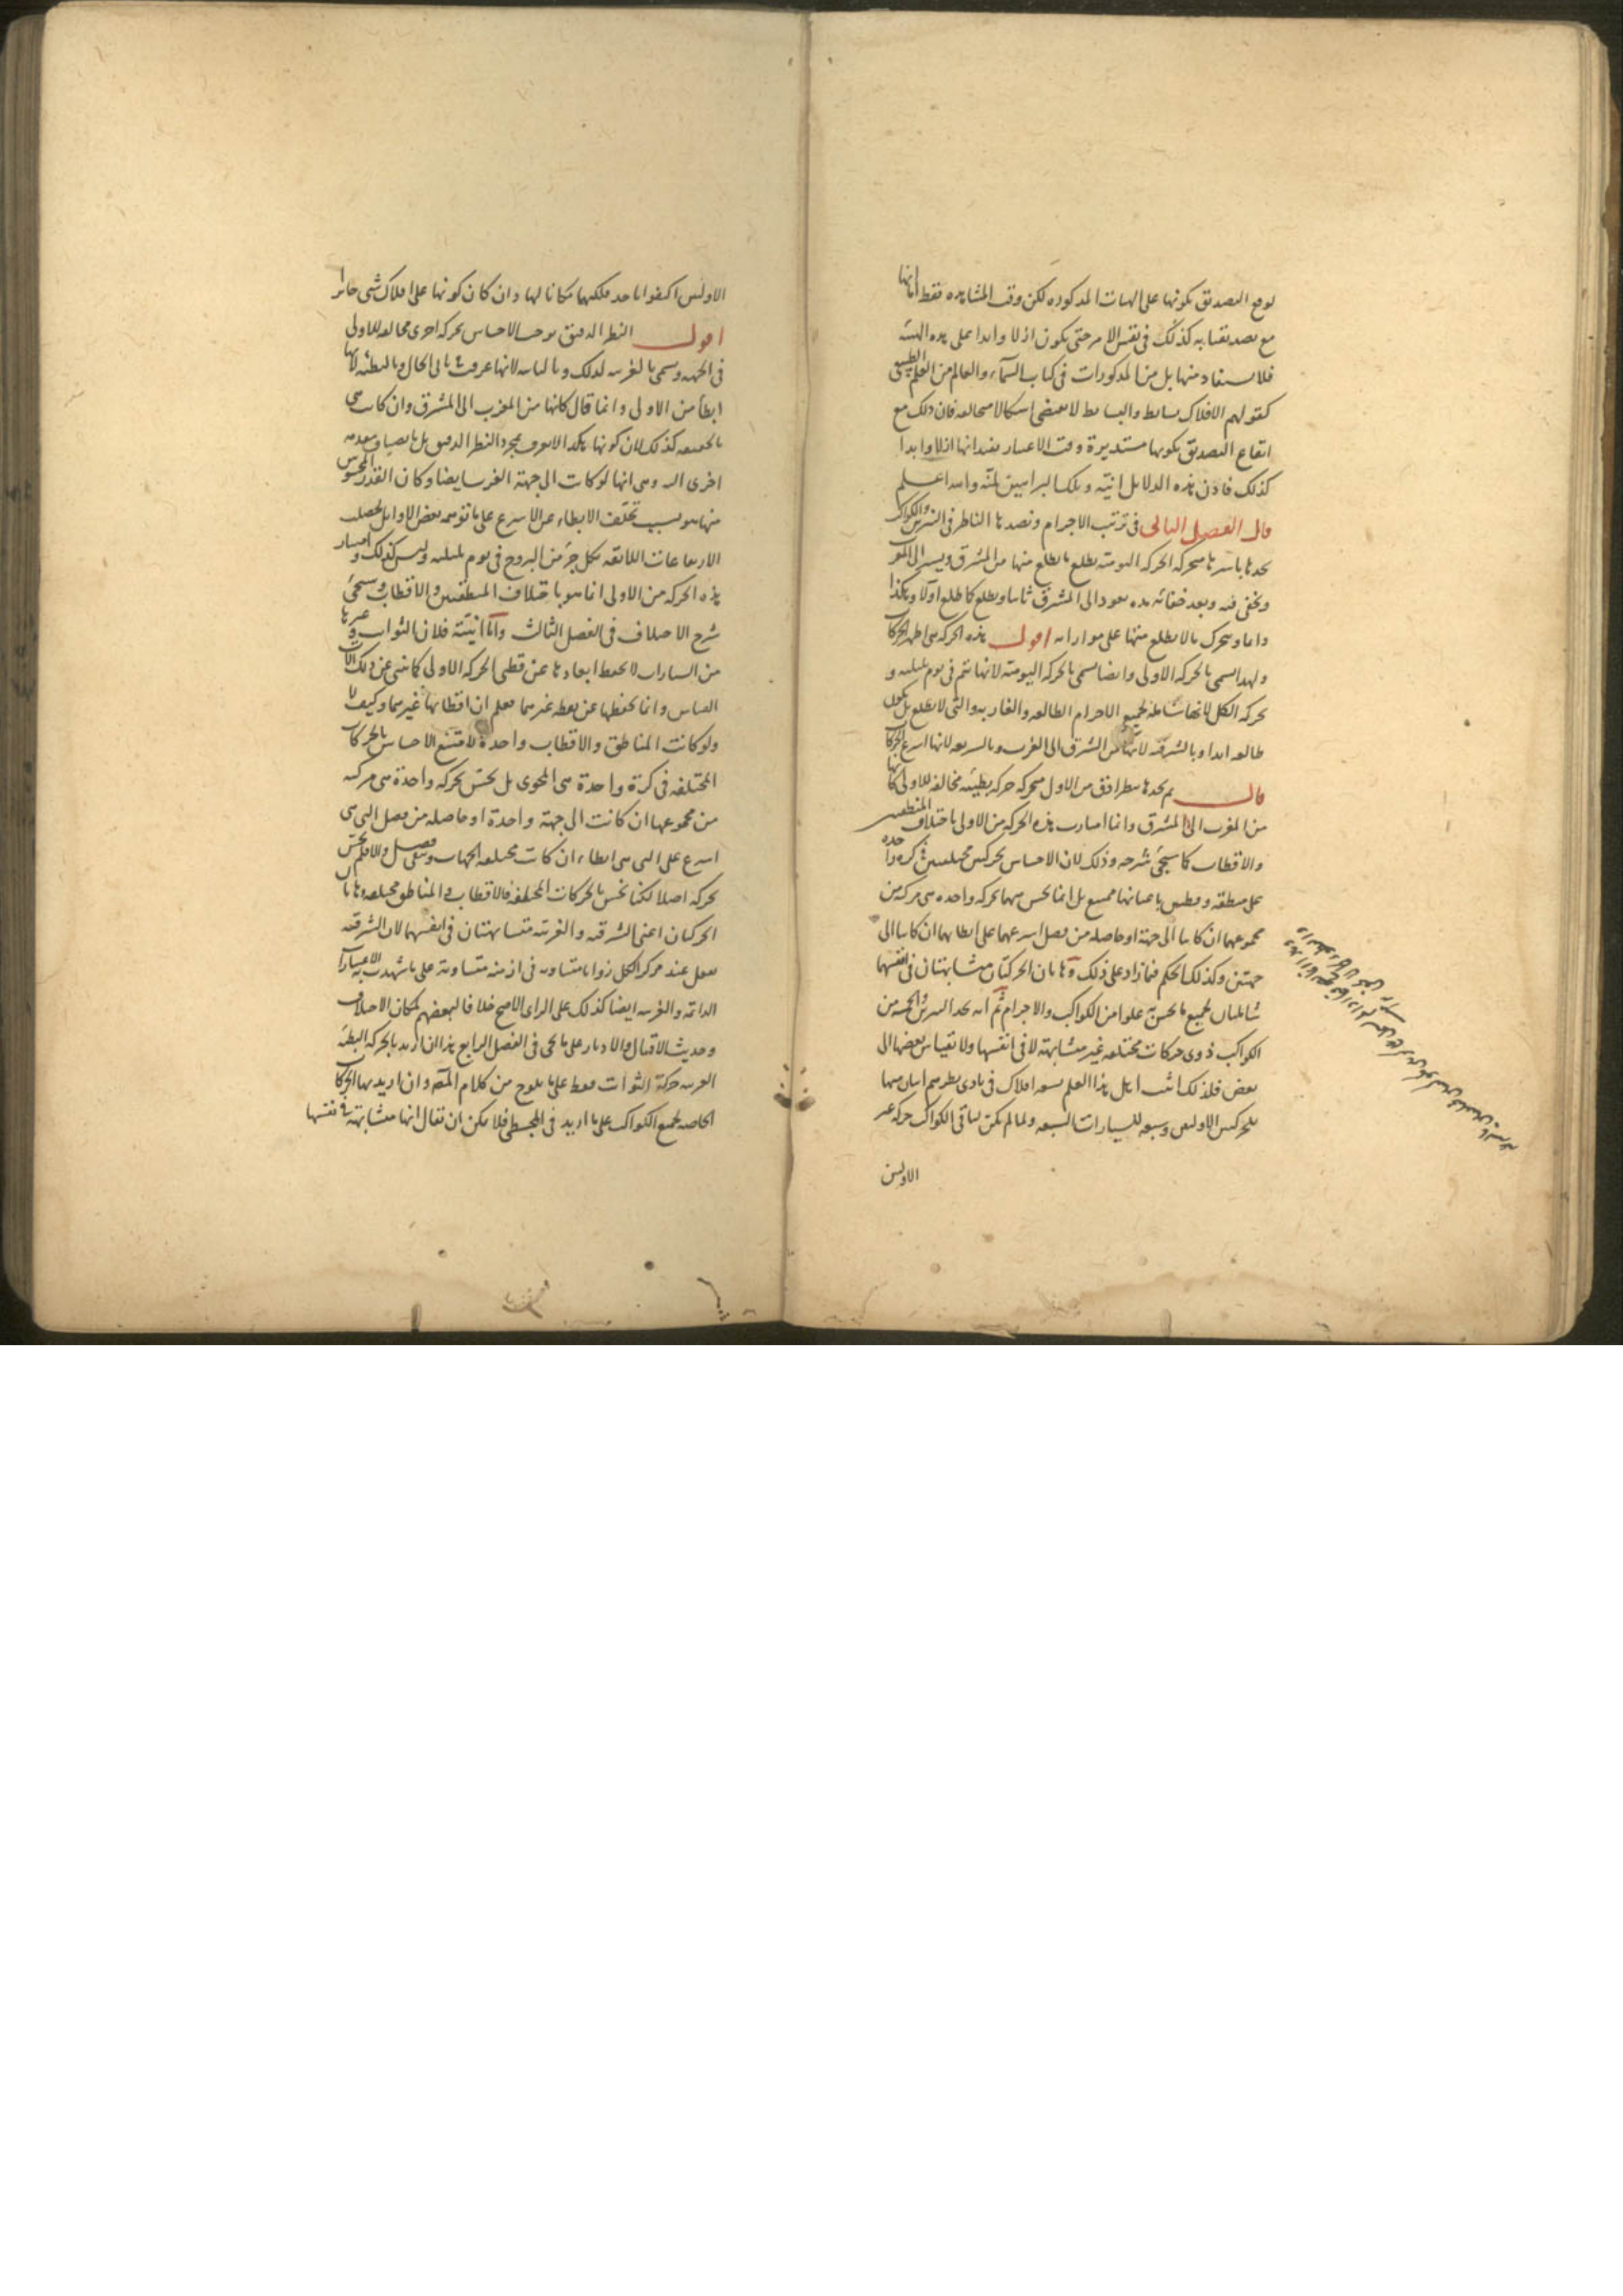 يوقع التصديق بكونها على الهيات المذكورة لكن وقت المشاهدة فقط اما انها
مع تصديقنا به كذلك في نفس الامر حتى يكون ازلا وابدا على هذه الهيئة
فلا يستفاد منها بل من المذكورات في كتاب السماء والعالم من العلم الطبيعي
كقولهم الافلاك بسايط والبسايط لا تقتضي اشكالا مختلفة فان ذلك مع
ايقاع التصديق بكونها مستديرة وقت الاعتبار يفيد انها ازلا وابدا
كذلك فاذن هذه الدلايل انية وتلك البراهين لمية والله اعلم
قال الفصل الثاني في ترتيب الاجرام ونضدها الناظر في النيرين والكواكب
يجدها باسرها متحركة الحركة اليومية يطلع ما يطلع منها من المشرق ويسير الى المغرب
ويخفى فيه وبعد خفائه مدة يعود الى المشرق ثانيا ويطلع كما طلع اولا وهكذا
دايما ويتحرك ما لا يطلع منها على موازاته اقول هذه الحركة هي اظهر الحركات
ولهذا تسمى بالحركة الاولى وايضا تسمى بالحركة اليومية لانها تتم في يوم بليلته و
بحركة الكل لانها شاملة لجميع الاجرام الطالعة والغاربة والتي لا تطلع بل تكون
طالعة ابدا وبالشرقية لانها من الشرق الى الغرب وبالسريعة لانها اسرع الحركات
قال ثم يجدها بنظر ادق من الاول متحركة حركة بطيئة مخالفة للاولى كانها
من المغرب الى المشرق وانما امتازت هذه الحركة من الاولى باختلاف المنطقتين
والاقطاب كما سيجئ شرحه وذلك لان الاحساس بحركتين مختلفتين في كرة واحدة
على منطقة وقطبين باعيانها ممتنع بل انما يحس منهما بحركة واحدة هي مركبة من
مجموعهما ان كانتا الى جهة او حاصلة من فضل اسرعهما على ابطائهما ان كانتا الى
جهتين وكذلك الحكم فيما زاد على ذلك وهاتان الحركتان متشابهتان في نفسهما
شاملتان لجميع ما يحس به علوا من الكواكب والاجرام ثم انه يجد النيرين والخمسة من
الكواكب ذوي حركات مختلفة غير متشابهة لا في انفسها ولا بقياس بعضها الى
بعض فلذلك اثبت اهل هذا العلم تسعة افلاك في بادي نظرهم اثنان منها
للحركتين الاوليين وسبعة للسيارات السبعة ولما لم يكن لباقي الكواكب حركة غير
الاوليين
الاوليين اكتفوا باحد فلكيهما مكانا لها وان كان كونها على افلاك شتى جائزا
اقول النظر الدقيق يوجب الاحساس بحركة اخرى مخالفة للاولى
في الجهة وتسمى بالغربية لذلك وبالثانية لانها عرفت ثاني الحال وبالبطيئة لانها
ابطأ من الاولى وانما قال كانها من المغرب الى المشرق وان كانت هي
بالحقيقة كذلك لان كونها هكذا لا يعرف بمجرد النظر الدقيق بل بانضياف مقدمة
اخرى اليه وهي انها لو كانت الى جهة الغرب ايضا وكان القدر المحسوس
منها هو بسبب تخلف الابطاء عن الاسرع على ما توهمه بعض الاوايل لحصلت
الارتفاعات اللايقة بكل جزء من البروج في يوم بليلته وليس كذلك وامتياز
هذه الحركة من الاولى انما هو باختلاف المنطقتين والاقطاب وسيجئ
شرح الاختلاف في الفصل الثالث واما انيته فلان الثوابت وغيرها
من السيارات لا يحفظ ابعادها عن قطبي الحركة الاولى كما ينبئ عن ذلك آلات
القياس وانما يحفظها عن نقطة غيرهما فعلم ان اقطابها غيرهما وكيف لا
ولو كانت المناطق والاقطاب واحدة لامتنع الاحساس بالحركات
المختلفة في كرة واحدة هي المحوى بل يحس بحركة واحدة هي مركبة
من مجموعها ان كانت الى جهة واحدة او حاصلة من فضل التي هي
اسرع على التي هي ابطاء ان كانت مختلفة الجهات وبقي فضل والا فلم يحس
بحركة اصلا لكنا نحس بالحركات المختلفة فالاقطاب والمناطق مختلفة وهاتان
الحركتان اعني الشرقية والغربية متشابهتان في انفسهما لان الشرقية
تفعل عند مركز الكل زوايا متساوية في ازمنة متساوية على ما شهدت به الاعتبارات
الدائمة والغربية ايضا كذلك على الراى الاصح خلافا لبعضهم لمكان الاختلاف
وحديث الاقبال والادبار على ما يجئ في الفصل الرابع هذا ان اريد بالحركة البطيئة
الغربية حركة الثوابت فقط على ما يلوح من كلام المصنف وان اريد بها الحركات
الخاصة لجميع الكواكب على ما اريد في المجسطي فلا يمكن ان يقال انها متشابهة في نفسها